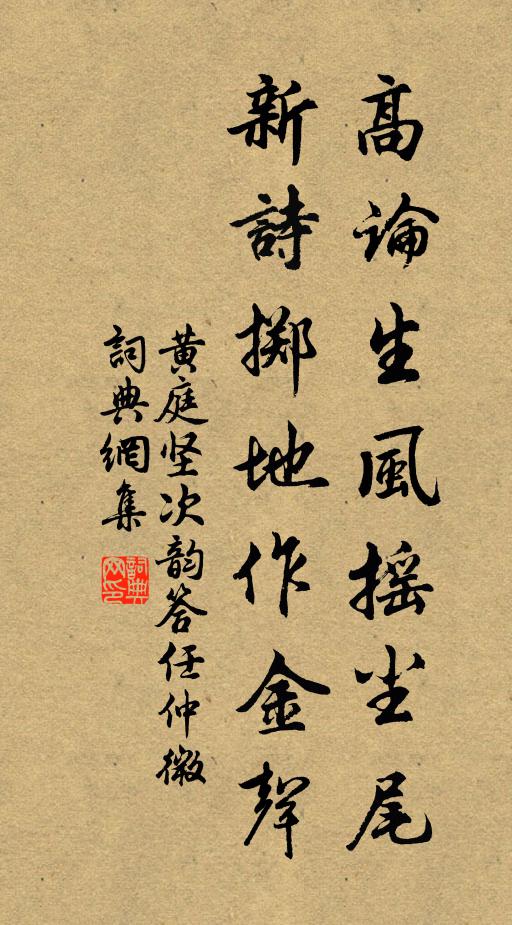 髙論生風摇尘尾
新詩掷地作金聲
黄庭坚次韵答任仲微
詞典網集
詞典网印